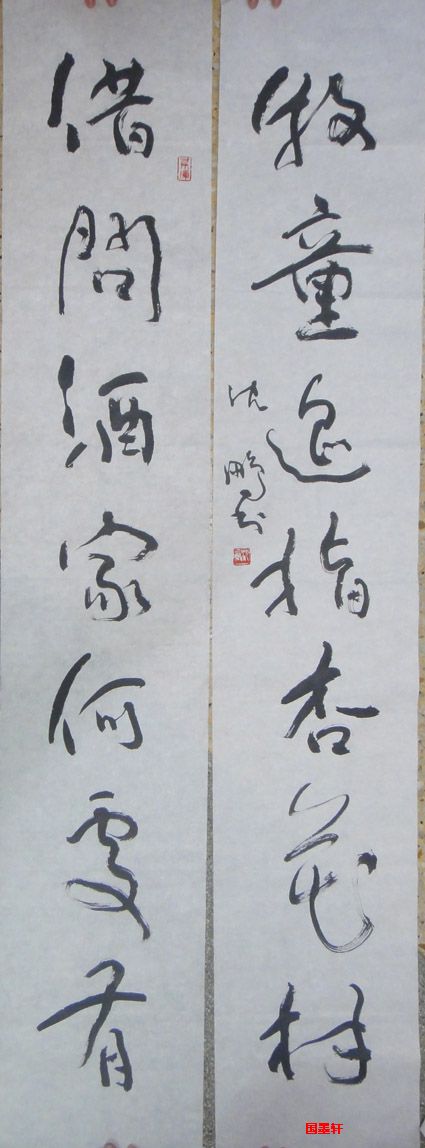 借問酒家何處有
牧童遥指杏花村
沈鹏书
国墨轩